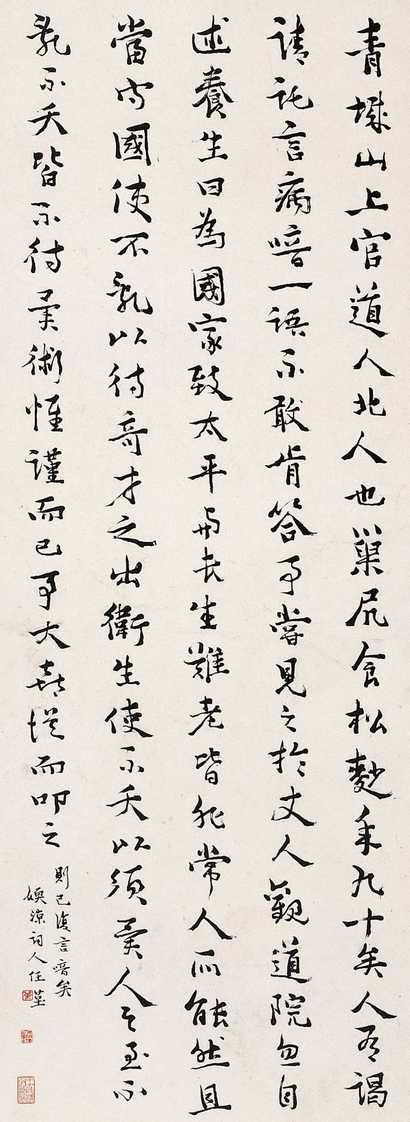 青城山上官道人北人也巢凥食松麨年九十矣人有謁
請託言病喑一語不敢肯答予嘗見之於丈人觀道院忽自
述養生曰為國家致太平與長生難老皆非常人所能然且
當守國使不亂以待奇才之出衛生使不夭以須異人之至不
亂不夭皆不待異術惟謹而已予大喜從而叩之
則已復言喑矣
詞人任堇